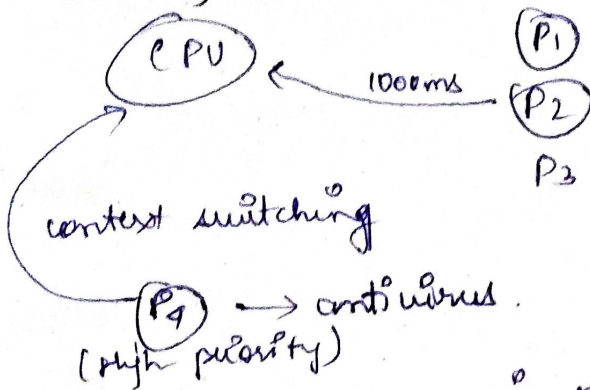 CPU
P1
1000ms
P2
P3
context switching
P4 → antivirus.
(High priority)